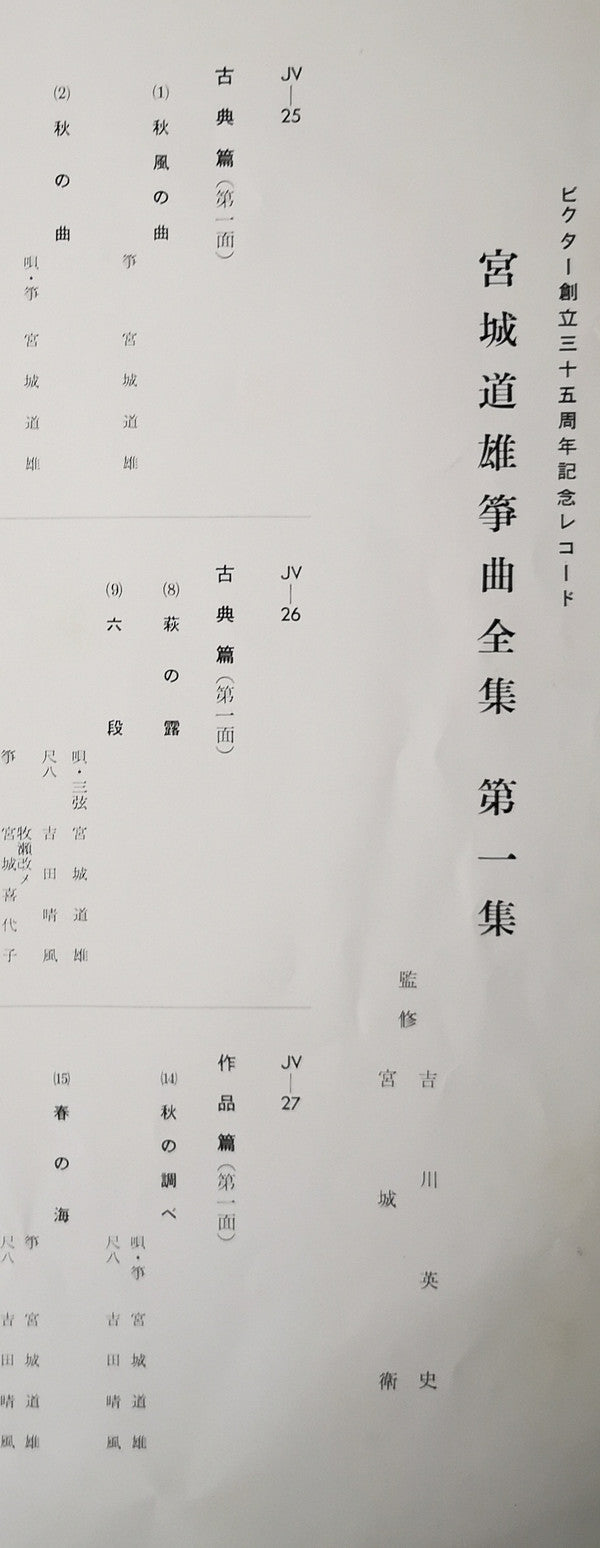 ビクター創立三十五周年記念レコード
宮城道雄箏曲全集 第一集
監修
吉川英史
宮城衛
JV—25
古典篇(第一面)
(1) 秋風の曲
箏 宮城道雄
(2) 秋の曲
唄・箏 宮城道雄
JV—26
古典篇(第一面)
(8) 萩の露
唄・三弦 宮城道雄
尺八 吉田晴風
(9) 六段
箏 牧瀬改メ
宮城喜代子
JV—27
作品篇(第一面)
(14) 秋の調べ
唄・箏 宮城道雄
尺八 吉田晴風
(15) 春の海
箏 宮城道雄
尺八 吉田晴風